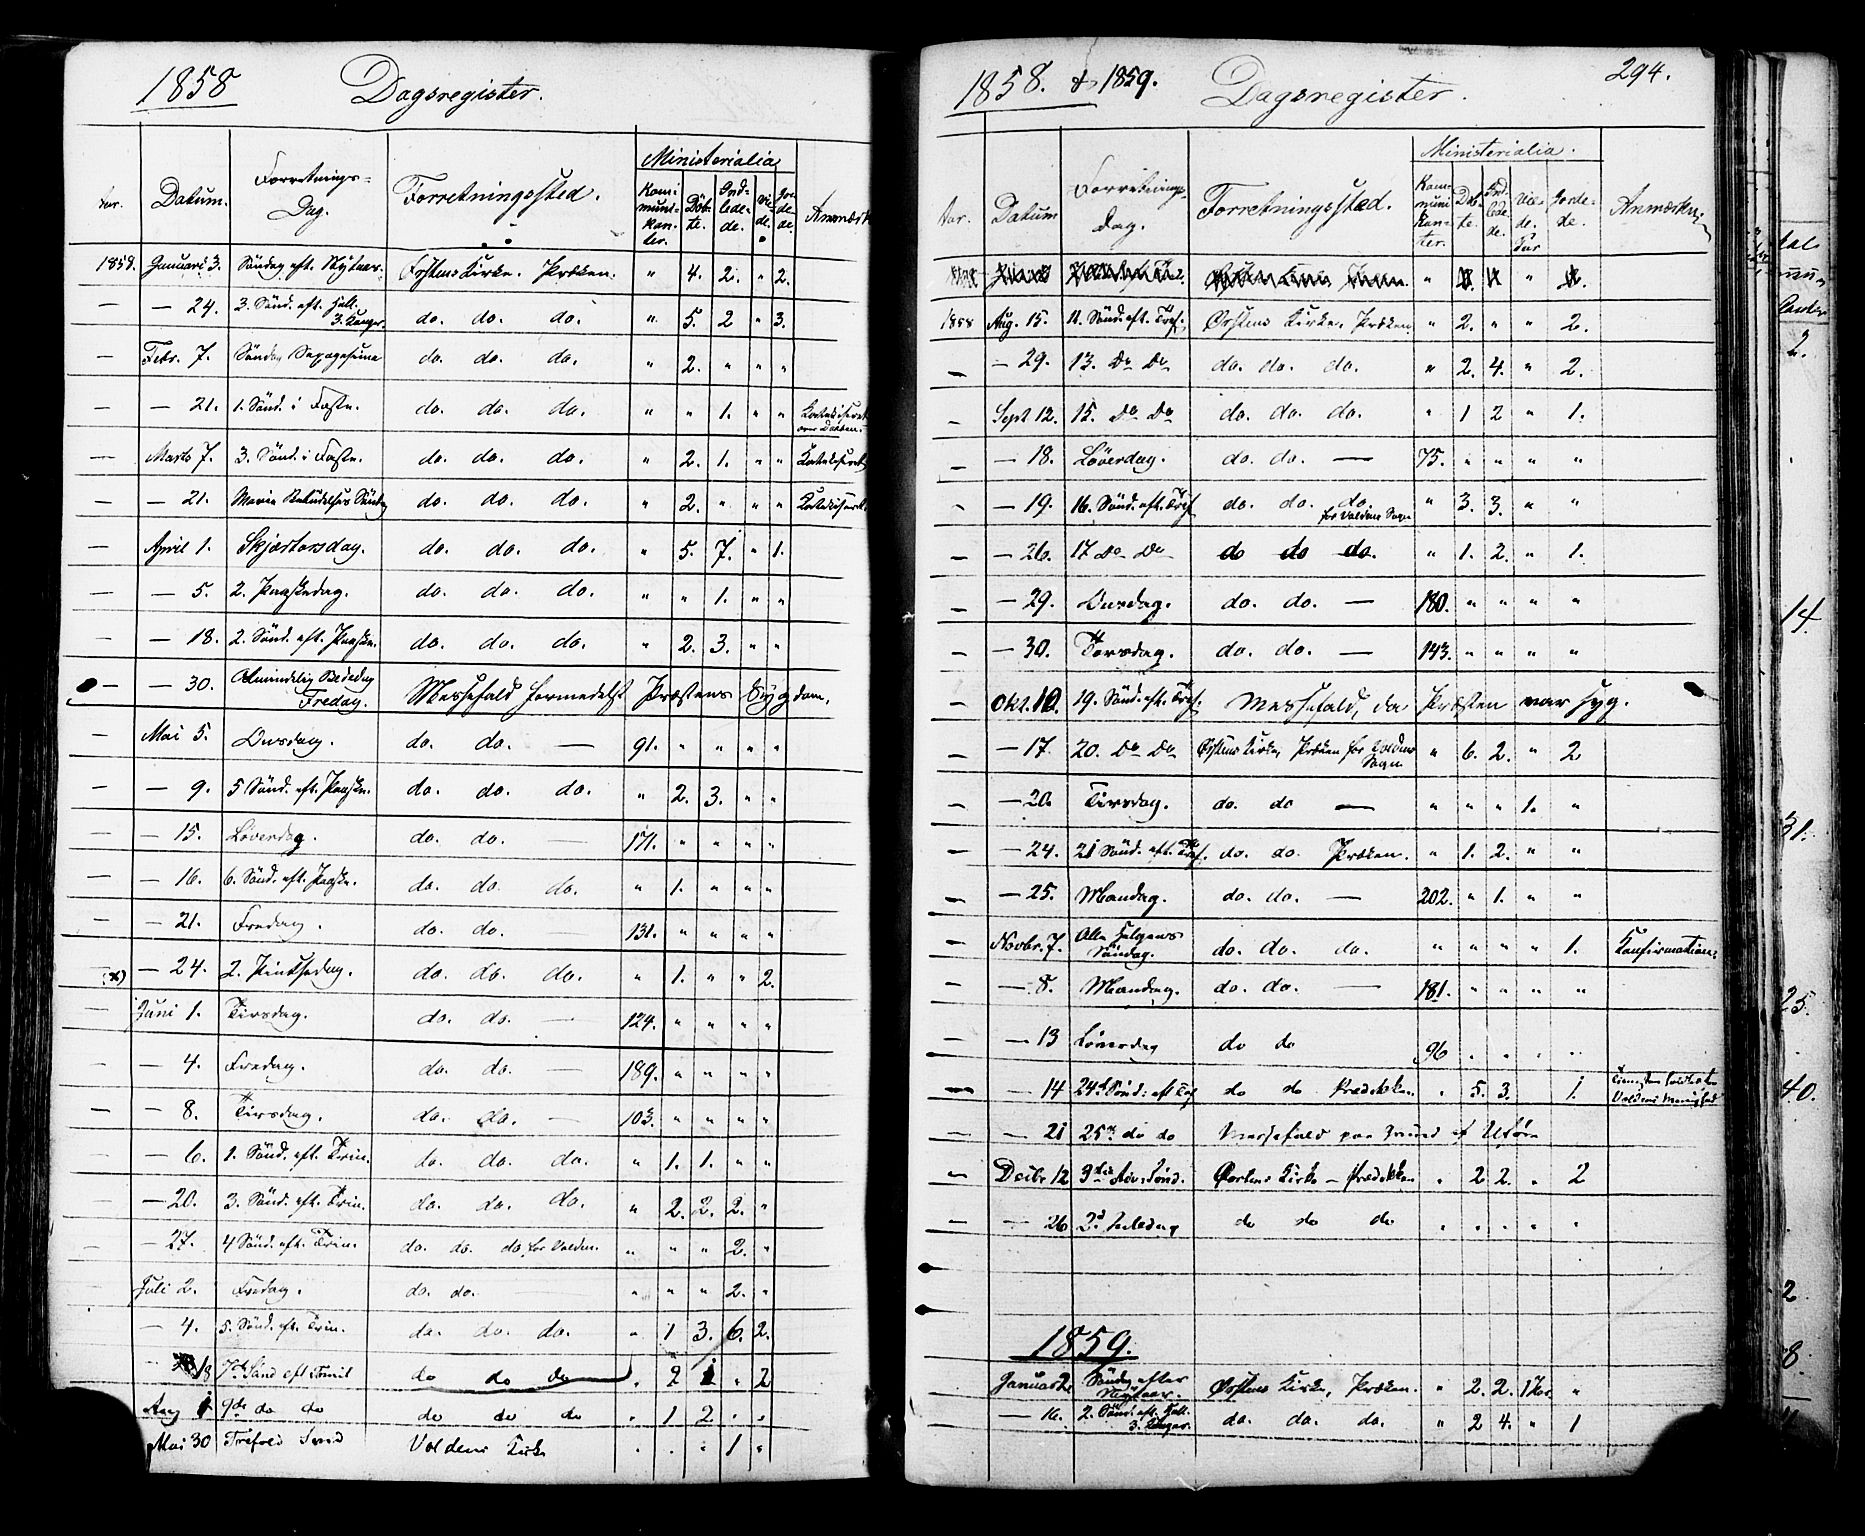 1858 Dagsregister.
Aar. Datum. Forretnings-Dag. Forretningssted. Ministerialia Kommunikanter. Döbte. Indledede. Viede. Jordede. Anmærkn
1858. Januari 3. Söndag eft. Nytaar. Örstens Kirke. Præken. " 4. 2. " 2.
— — 24. 3. Sönd. eft. Hell. 3. Konger. do. do. do. " 5. 2 " 3.
— Febr. 7. Söndag Sexagesima do. do. do. " 2. " " "
— — 21. 1. Sönd. i Faste. do. do. do. " " 1. " " Katekiseret over Daaben.
— Marts 7. 3. Sönd. i Faste. do. do. do. " 2. 1. " " Katekiseret
— — 21. Mariæ Bebudelses Söndag do. do. do. " 2. " " " Katekiseret.
— April 1. Skjærtorsdag. do. do. do. " 5. 7. " 1.
— — 5. 2. Paaskedag. do. do. do. " " 1. " "
— — 18. 2. Sönd. eft. Paaske. do. do. do. " 2. 3. " "
— — 30. Almindelig Bededag Fredag. Messefald formedelst Præstens Sygdom.
— Mai 5. Onsdag. do. do. — 91. " " " "
— — 9. 5 Sönd. eft. Paaske. do. do. do. " 2. 3. " "
— — 15. Löverdag. do. do. — 171. " " " "
— — 16. 6. Sönd. eft. Paaske. do. do. do. " 1. " " "
— — 21. Fredag. do. do. — 131. " " " "
(x) — 24. 2. Pintsedag. do. do. do. " 1. " " 2.
— Juni 1. Tirsdag. do. do. — 124. " " " "
— — 4. Fredag. do. do. — 189. " " " "
— — 8. Tirsdag. do. do. — 103. " " " "
— — 6. 1. Sönd. eft. Trin. do. do. do. " 1. 1. " "
— — 20. 3. Sönd. eft. Trin. do. do. do. " 2. 2. 2. "
— — 27. 4 Sönd. eft. Trin. do. do. do. for Volden. " " " 2. "
— Juli 2. Fredag. do. do. " " " 2. "
— — 4. 5. Sönd. eft. Trin. do. do. do. " 1 3. 6. 2.
— 18 7de Sönd eft Trinit do do do " 2 1 " 2
Aug 1 9de do do do do do " 1 2 " "
Mai 30 Trefold Sönd Voldens Kirke " " " 1 "
1858. & 1859. Dagsregister. 294.
Aar. Datum Forretnings-Dag. Forretningssted. Ministerialia. Kommunikanter. Döbte. Indledede. Viede. Par Jordede. Anmærkn.
1858 Aug. 15. 11. Sönd. eft. Tref. Örstens Kirke, Præken " 2. " " 2.
— — 29. 13. Do Do do. do. do. " 2. 4. " 2.
— Sept 12. 15. Do Do do. do. do. " 1 2 " 1.
— — 18. Löverdag. do. do. — 75. " " " "
— — 19. 16. Sönd. eft. Tref. do. do. do. for Voldens Sogn " 3. 3. " "
— — 26. 17 Do Do do do do. " 1. 2. " 1.
— — 29. Onsdag. do. do. — 180. " " " "
— — 30. Torsdag. do. do. — 143. " " " "
— Okt. 10. 19. Sönd. eft. Tref. Messefald, da Præsten var syg.
— — 17. 20. Do Do Örstens Kirke, Præken for Voldens Sogn " 6. 2. " 2
— — 20. Tirsdag. do. do — " " " 1. "
— — 24. 21 Sönd. eft. Tref. do. do. Præken. " 1. 2. " "
— — 25. Mandag. do. do. — 202. " 1. " "
— Novbr. 7. Alle Helgens Söndag. do. do. do. " " " " 1. Konfirmation.
— — 8. Mandag. do. do. — 181. " " " "
— — 13 Löverdag do do 96 " " " "
— — 14 24de Sönd: eft Tref do do Prædikken " 5. 3. 1. Voldens Menighed
— — 21 25de do do Messefald paa Grund af Uföre
— Decbr 12 3die Adv: Sönd. Örstens Kirke — Prædikken " 2 2. " 2
— — 26 2d Juledag do do do " " " " "
1859.
Januar 2. Söndag efter Nytaar. Örstens Kirke, Præken. " 2. 2. 1 Par. "
— 16. 2. Sönd. eft. Hell. 3. Konger. do. do. do. " 2 4. " 1
2.
14.
31.
25.
40.
2
8.